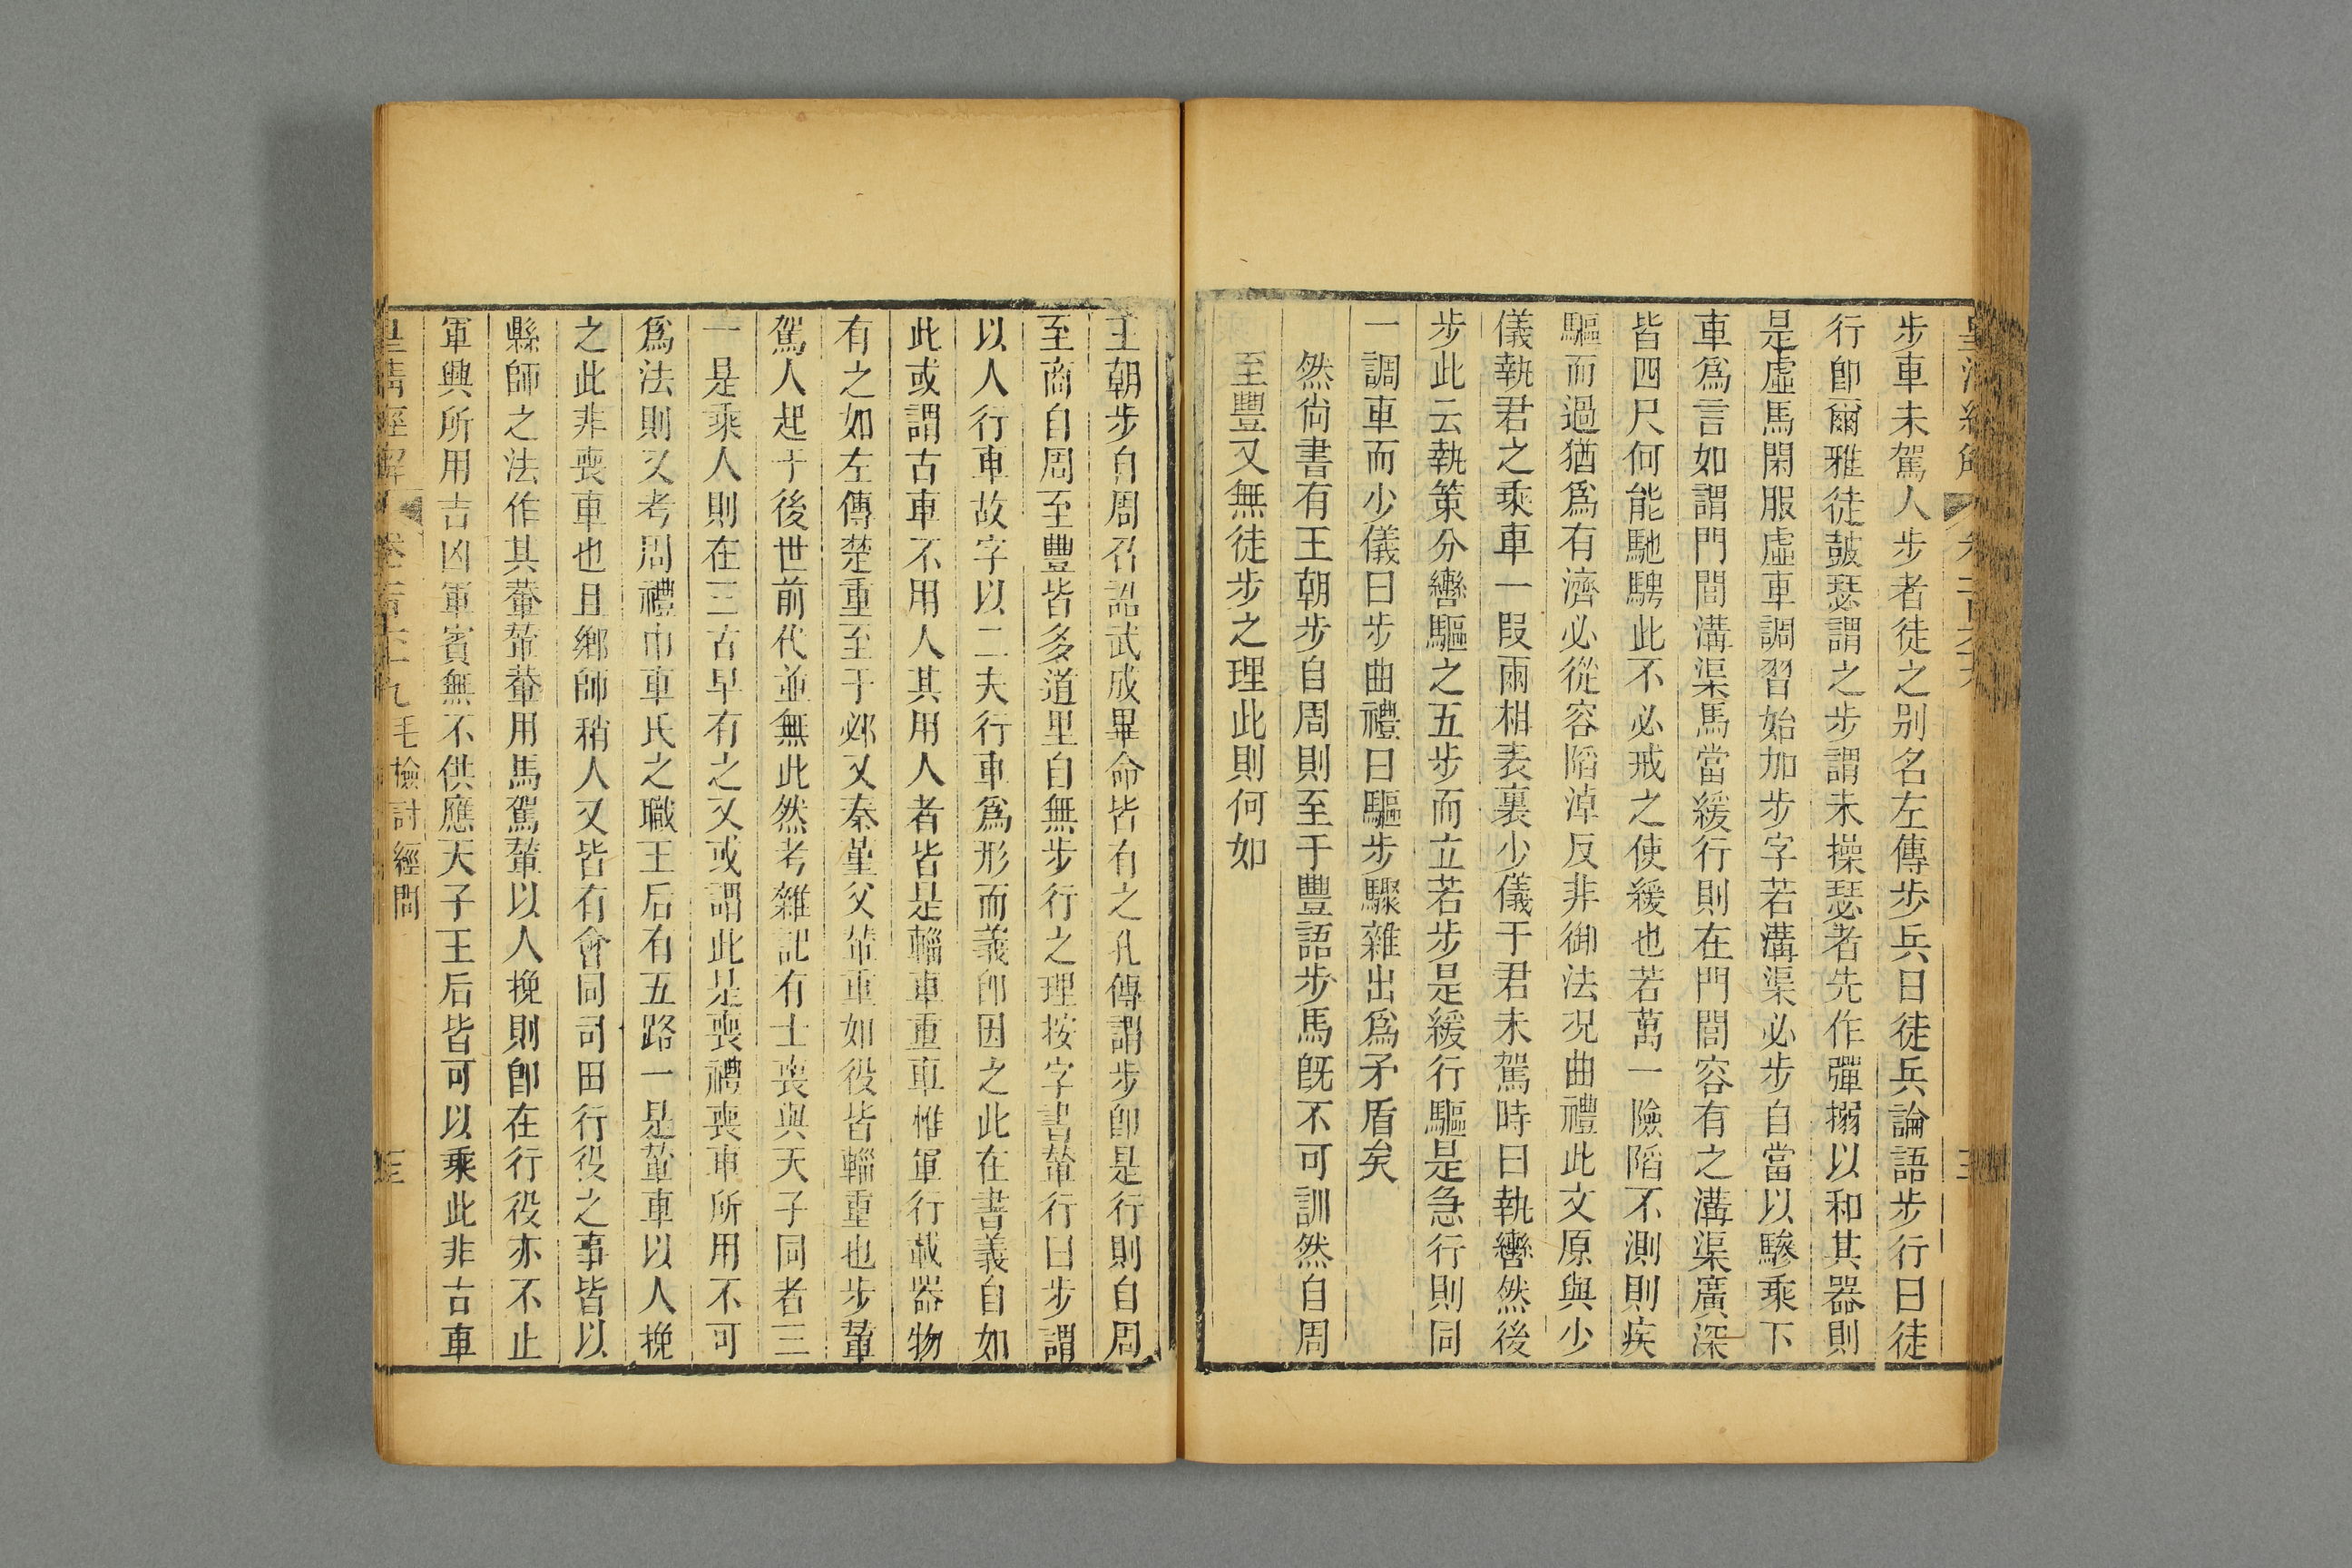 步車未駕人步者徒之別名左傳步兵曰徒兵論語步行曰徒
行卽爾雅徒鼓瑟謂之步謂未操瑟者先作彈搦以和其器則
是虛馬閑服虛車調習始加步字若溝渠必步自當以驂乘下
車爲言如謂門閭溝渠馬當緩行則在門閭容有之溝渠廣深
皆四尺何能馳騁此不必戒之使緩也若萬一險陷不測則疾
驅而過猶爲有濟必從容陷淖反非御法况曲禮此文原與少
儀執君之乘車一叚兩相表裏少儀于君未駕時曰執轡然後
步此云執策分轡驅之五步而立若步是緩行驅是急行則同
一調車而少儀曰步曲禮曰驅步驟雜出爲矛盾矣
然尙書有王朝步自周則至于豐語步馬旣不可訓然自周
至豐又無徒步之理此則何如
王朝步自周召誥武成畢命皆有之孔傳謂步卽是行則自周
至商自周至豐皆多道里自無步行之理按字書輦行曰步謂
以人行車故字以二夫行車爲形而義卽因之此在書義自如
此或謂古車不用人其用人者皆是輜車重車惟軍行載器物
有之如左傳楚重至于邲又秦堇父輦重如役皆輜重也步輦
駕人起于後世前代並無此然考雜記有士喪與天子同者三
一是乘人則在三古早有之又或謂此是喪禮喪車所用不可
爲法則又考周禮巾車氏之職王后有五路一是輦車以人挽
之此非喪車也且鄉師稍人又皆有會同司田行役之事皆以
縣師之法作其輂輦輂用馬駕輦以人挽則卽在行役亦不止
軍興所用吉凶軍賓無不供應天子王后皆可以乘此非古車
皇清經解 毛檢討經問